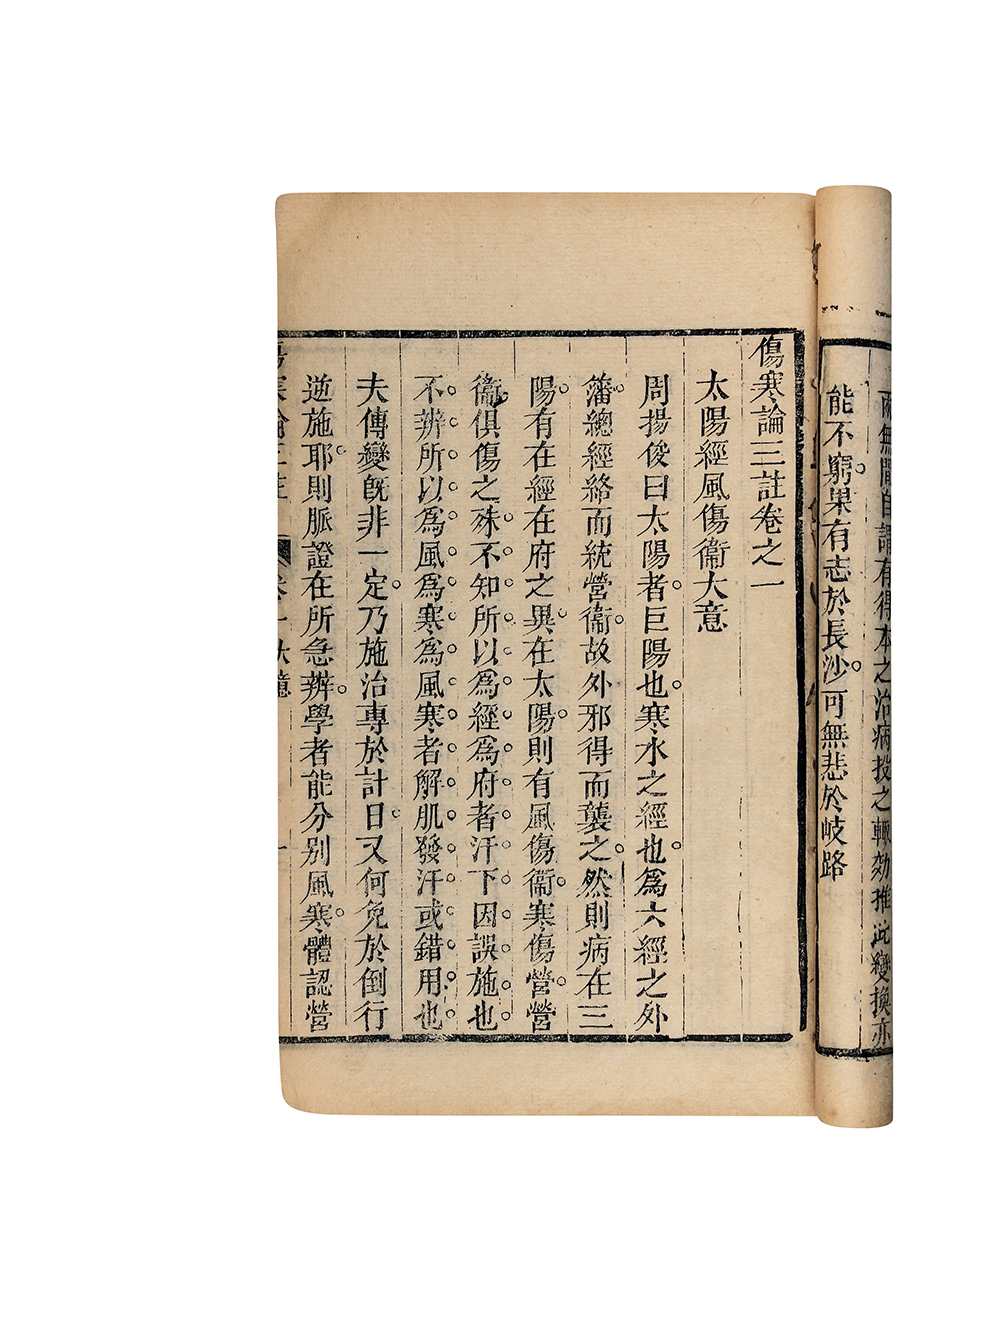 兩無間自謂有得本之治病投之輒効推此變換亦
能不窮果有志於長沙可無悲於岐路
傷寒論三註卷之一
太陽經風傷衞大意
周揚俊曰太陽者巨陽也寒水之經也爲六經之外
籓總經絡而統營衞故外邪得而襲之然則病在三
陽有在經在府之異在太陽則有風傷衞寒傷營營
衞俱傷之殊不知所以爲經爲府者汗下因誤施也
不辨所以爲風爲寒爲風寒者解肌發汗或錯用也
夫傳變旣非一定乃施治專於計日又何免於倒行
逆施耶則脈證在所急辨學者能分別風寒體認營
傷寒論三註 卷一 一